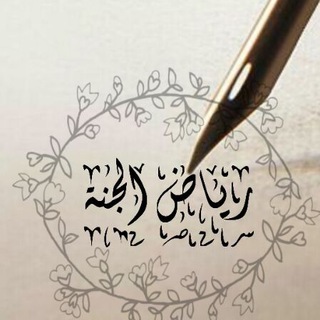 رياض الجنة